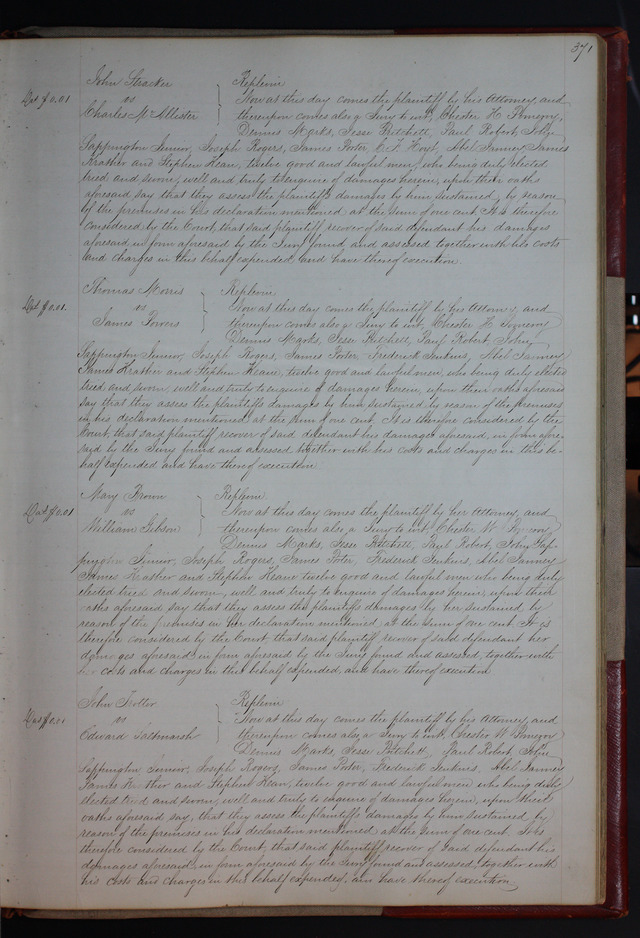 371
John Stracker } Replevin
Das $0.01 vs Now at this day comes the plaintiff by his Attorney, and
Charles McAllister thereupon comes also a Jury to wit, Chester H. Pomeroy,
Dennis Marks, Jesse Pritchett, Paul Robert, John
Sappington Senior, Joseph Rogers, James Porter, Hoyt, Abel Janney James
Krather and Stephen Kean, twelve good and lawful men, who being duly elected
tried and sworn, well and truly to enquire of damages herein, upon their oaths
aforesaid say that they assess the plaintiffs damages by him sustained, by reason
of the premises in his declaration mentioned at the sum of one cent. It is therefore
considered by the Court, that said plaintiff recover of said defendant his damages
aforesaid in form aforesaid by the Jury found and assessed together with his costs
and charges in this behalf expended, and have thereof execution.
Thomas Morris } Replevin
Das $0.01. vs Now at this day comes the plaintiff by his Attorney and
James Powers thereupon comes also a Jury to wit, Chester H. Pomeroy
Dennis Marks, Jesse Pritchett, Paul Robert, John
Sappington Senior, Joseph Rogers, James Porter, Frederick Jenkins, Abel Janney
James Krather and Stephen Keane, twelve good and lawful men, who being duly elected
tried and sworn, well and truly to enquire of damages herein, upon their oaths aforesaid
say that they assess the plaintiffs damages by him sustained by reason of the premises
in his declaration mentioned at the sum of one cent. It is therefore considered by the
Court, that said plaintiff recover of said defendant his damages aforesaid, in form afore-
said by the Jury found and assessed together with his costs and charges in this be-
half expended and have thereof execution
Mary Brown } Replevin
Das $0.01 vs Now at this day comes the plaintiff by her Attorney, and
William Gibson thereupon comes also, a Jury to wit Chester W. Pomeroy
Dennis Marks, Jesse Pritchett, Paul Robert, John Sap-
pington Senior, Joseph Rogers, James Porter, Frederick Jenkins, Abel Janney
James Krather and Stephen Keane twelve good and lawful men who being duly
elected tried and sworn, well and truly to enquire of damages herein, upon their
oaths aforesaid say that they assess the plaintiffs damages by her sustained by
reason of the premises in her declaration mentioned at the sum of one cent. It is
therefore considered by the Court that said plaintiff recover of said defendant her
damages aforesaid in form aforesaid by the Jury found and assessed, together with
her costs and charges in this behalf expended, and have thereof execution.
John Trotter } Replevin
Das $0.01 vs Now at this day comes the plaintiff by his Attorney and
Edward Saltmarsh thereupon comes also a Jury to wit, Chester W. Pomeroy
Dennis Marks, Jesse Pritchett, Paul Robert, John
Sappington Senior, Joseph Rogers, James Porter, Frederick Jenkins, Abel Janney
James Krather and Stephen Kean, twelve good and lawful men who being duly
elected tried and sworn, well and truly to enquire of damages herein, upon their
oaths aforesaid say, that they assess the plaintiffs damages by him sustained by
reason of the premises in his declaration mentioned at the sum of one cent. It is
therefore considered by the Court, that said plaintiff recover of said defendant his
damages aforesaid, in form aforesaid by the Jury found and assessed, together with
his costs and charges in this behalf expended, and have thereof execution